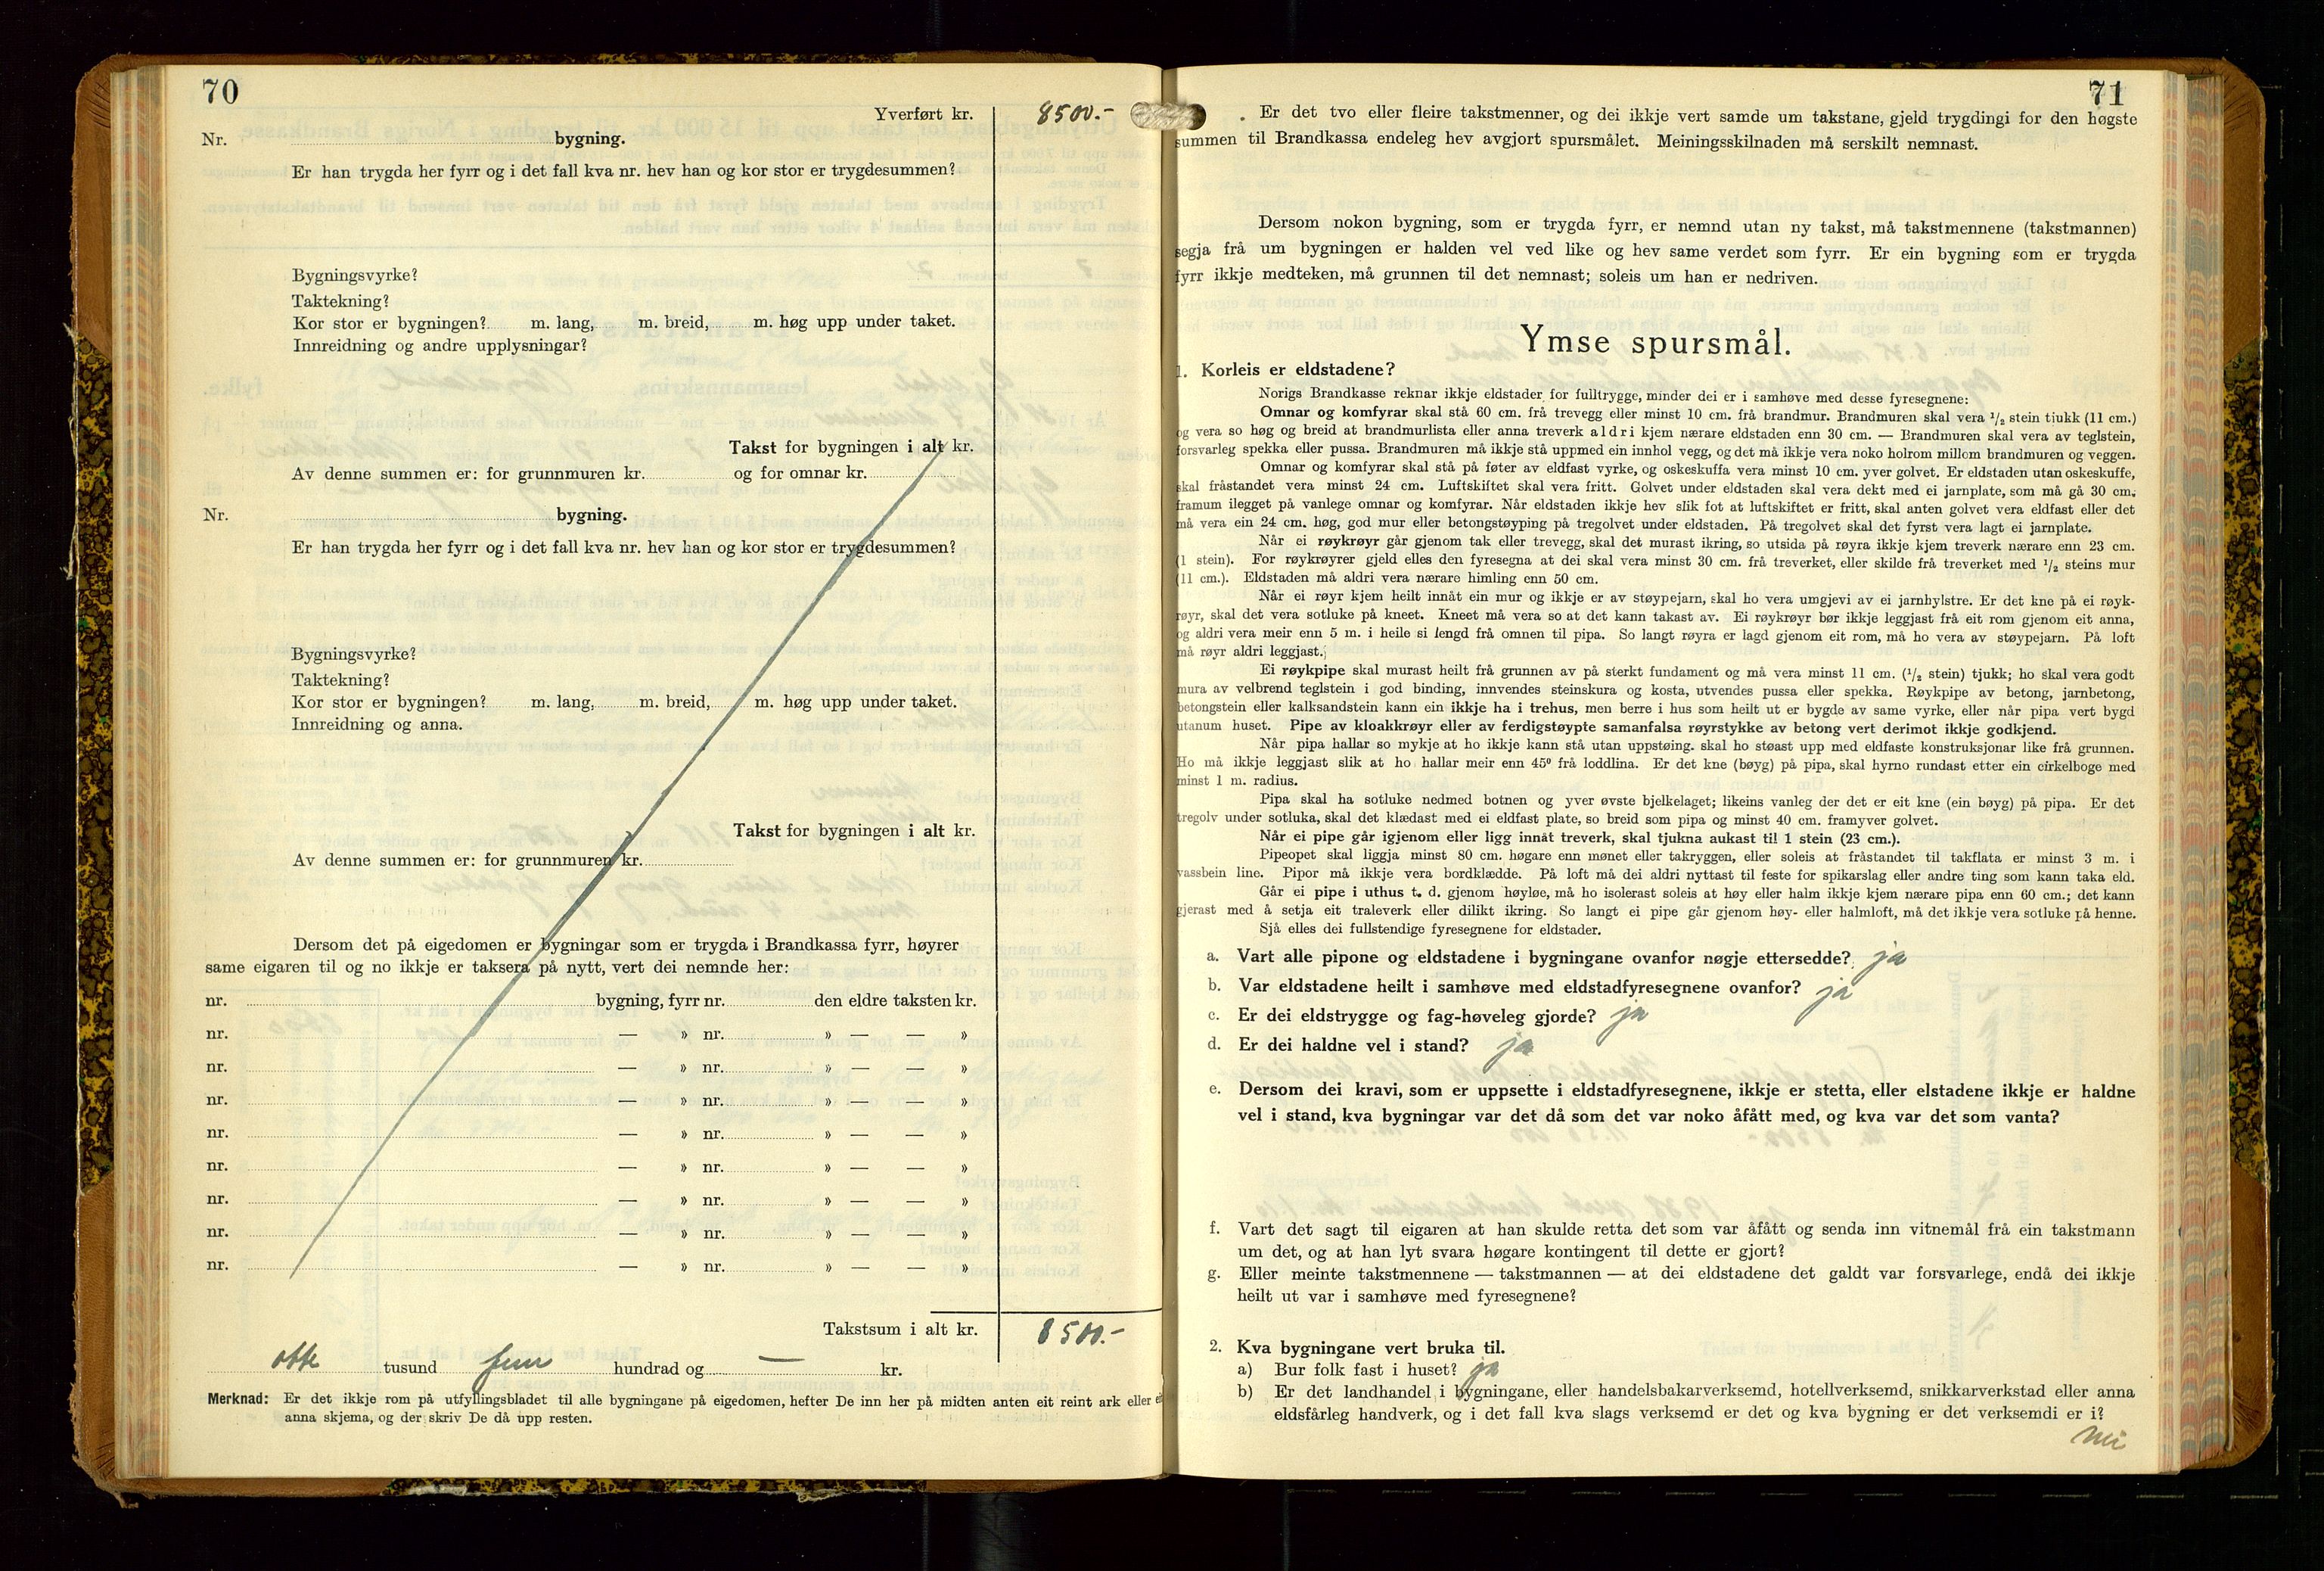 70
Yverført kr. 8500.-
Nr. bygning.
Er han trygda her fyrr og i det fall kva nr. hev han og kor stor er trygdesummen?
Bygningsvyrke?
Taktekning?
Kor stor er bygningen? m. lang, m. breid, m. høg upp under taket.
Innreidning og andre upplysningar?
Takst for bygningen i alt kr.
Av denne summen er: for grunnmuren kr. og for omnar kr.
Nr. bygning.
Er han trygda her fyrr og i det fall kva nr. hev han og kor stor er trygdesummen?
Bygningsvyrke?
Taktekning?
Kor stor er bygningen? m. lang, m. breid, m. høg upp under taket.
Innreidning og anna.
Takst for bygningen i alt kr.
Av denne summen er: for grunnmuren kr.
Dersom det på eigedomen er bygningar som er trygda i Brandkassa fyrr, høyrer
same eigaren til og no ikkje er taksera på nytt, vert dei nemnde her:
nr. bygning, fyrr nr. den eldre taksten kr.
nr. — » nr. » — — »
nr. — » nr. » — — »
nr. — » nr. » — — »
nr. — » nr. » — — »
nr. — » nr. » — — »
nr. — » nr. » — — »
nr. — » nr. » — — »
nr. — » nr. » — — »
Takstsum i alt kr. 8500.-
otte tusund fem hundrad og — kr.
Merknad: Er det ikkje rom på utfyllingsbladet til alle bygningane på eigedomen, hefter De inn her på midten anten eit reint ark eller
anna skjema, og der skriv De då upp resten.
71
. Er det tvo eller fleire takstmenner, og dei ikkje vert samde um takstane, gjeld trygdingi for den høgste
summen til Brandkassa endeleg hev avgjort spursmålet. Meiningsskilnaden må serskilt nemnast.
Dersom nokon bygning, som er trygda fyrr, er nemnd utan ny takst, må takstmennene (takstmannen)
segja frå um bygningen er halden vel ved like og hev same verdet som fyrr. Er ein bygning som er trygda
fyrr ikkje medteken, må grunnen til det nemnast; soleis um han er nedriven.
Ymse spursmål.
1. Korleis er eldstadene?
Norigs Brandkasse reknar ikkje eldstader for fulltrygge, minder dei er i samhøve med desse fyresegnene:
Omnar og komfyrar skal stå 60 cm. frå trevegg eller minst 10 cm. frå brandmur. Brandmuren skal vera 1/2 stein tjukk (11 cm.)
og vera so høg og breid at brandmurlista eller anna treverk aldri kjem nærare eldstaden enn 30 cm. — Brandmuren skal vera av teglstein,
forsvarleg spekka eller pussa. Brandmuren må ikkje stå uppmed ein innhol vegg, og det må ikkje vera noko holrom millom brandmuren og veggen.
Omnar og komfyrar skal stå på føter av eldfast vyrke, og oskeskuffa vera minst 10 cm. yver golvet. Er eldstaden utan oskeskuffe,
skal fråstandet vera minst 24 cm. Luftskiftet skal vera fritt. Golvet under eldstaden skal vera dekt med ei jarnplate, som må gå 30 cm.
framum ilegget på vanlege omnar og komfyrar. Når eldstaden ikkje hev slik fot at luftskiftet er fritt, skal anten golvet vera eldfast eller det
må vera ein 24 cm. høg, god mur eller betongstøyping på tregolvet under eldstaden. På tregolvet skal det fyrst vera lagt ei jarnplate.
Når ei røykrøyr går gjenom tak eller trevegg, skal det murast ikring, so utsida på røyra ikkje kjem treverk nærare enn 23 cm.
(1 stein). For røykrøyrer gjeld elles den fyresegna at dei skal vera minst 30 cm. frå treverket, eller skilde frå treverket med 1/2 steins mur
(11 cm.). Eldstaden må aldri vera nærare himling enn 50 cm.
Når ei røyr kjem heilt innåt ein mur og ikkje er av støypejarn, skal ho vera umgjevi av ei jarnhylstre. Er det kne på ei røyk-
røyr, skal det vera sotluke på kneet. Kneet må vera so at det kann takast av. Ei røykrøyr bør ikkje leggjast frå eit rom gjenom eit anna,
og aldri vera meir enn 5 m. i heile si lengd frå omnen til pipa. So langt røyra er lagd gjenom eit rom, må ho vera av støypejarn. På loft
må røyr aldri leggjast.
Ei røykpipe skal murast heilt frå grunnen av på sterkt fundament og må vera minst 11 cm. (1/2 stein) tjukk; ho skal vera godt
mura av velbrend teglstein i god binding, innvendes steinskura og kosta, utvendes pussa eller spekka. Røykpipe av betong, jarnbetong,
betongstein eller kalksandstein kann ein ikkje ha i trehus, men berre i hus som heilt ut er bygde av same vyrke, eller når pipa vert bygd
utanum huset. Pipe av kloakkrøyr eller av ferdigstøypte samanfalsa røyrstykke av betong vert derimot ikkje godkjend.
Når pipa hallar so mykje at ho ikkje kann stå utan uppstøing. skal ho støast upp med eldfaste konstruksjonar like frå grunnen.
Ho må ikkje leggjast slik at ho hallar meir enn 45° frå loddlina. Er det kne (bøyg) på pipa, skal hyrno rundast etter ein cirkelboge med
minst 1 m. radius.
Pipa skal ha sotluke nedmed botnen og yver øvste bjelkelaget; likeins vanleg der det er eit kne (ein bøyg) på pipa. Er det
tregolv under sotluka, skal det klædast med ei eldfast plate, so breid som pipa og minst 40 cm. framyver golvet.
Når ei pipe går igjenom eller ligg innåt treverk, skal tjukna aukast til 1 stein (23 cm.).
Pipeopet skal liggja minst 80 cm. høgare enn mønet eller takryggen, eller soleis at fråstandet til takflata er minst 3 m. i
vassbein line. Pipor må ikkje vera bordklædde. På loft må dei aldri nyttast til feste for spikarslag eller andre ting som kann taka eld.
Går ei pipe i uthus t. d. gjenom høyløe, må ho isolerast soleis at høy eller halm ikkje kjem nærare pipa enn 60 cm.; det kann
gjerast med å setja eit traleverk eller dilikt ikring. So langt ei pipe går gjenom høy- eller halmloft, må det ikkje vera sotluke på henne.
Sjå elles dei fullstendige fyresegnene for eldstader.
a. Vart alle pipone og eldstadene i bygningane ovanfor nøgje ettersedde? ja
b. Var eldstadene heilt i samhøve med eldstadfyresegnene ovanfor? ja
c. Er dei eldstrygge og fag-høveleg gjorde? ja
d. Er dei haldne vel i stand? ja
e. Dersom dei kravi, som er uppsette i eldstadfyresegnene, ikkje er stetta, eller elstadene ikkje er haldne
vel i stand, kva bygningar var det då som det var noko åfått med, og kva var det som vanta?
f. Vart det sagt til eigaren at han skulde retta det som var åfått og senda inn vitnemål frå ein takstmann
um det, og at han lyt svara høgare kontingent til dette er gjort?
g. Eller meinte takstmennene — takstmannen — at dei eldstadene det galdt var forsvarlege, endå dei ikkje
heilt ut var i samhøve med fyresegnene?
2. Kva bygningane vert bruka til.
a) Bur folk fast i huset? ja
b) Er det landhandel i bygningane, eller handelsbakarverksemd, hotellverksemd, snikkarverkstad eller anna
eldsfårleg handverk, og i det fall kva slags verksemd er det og kva bygning er det verksemdi er i?
nei